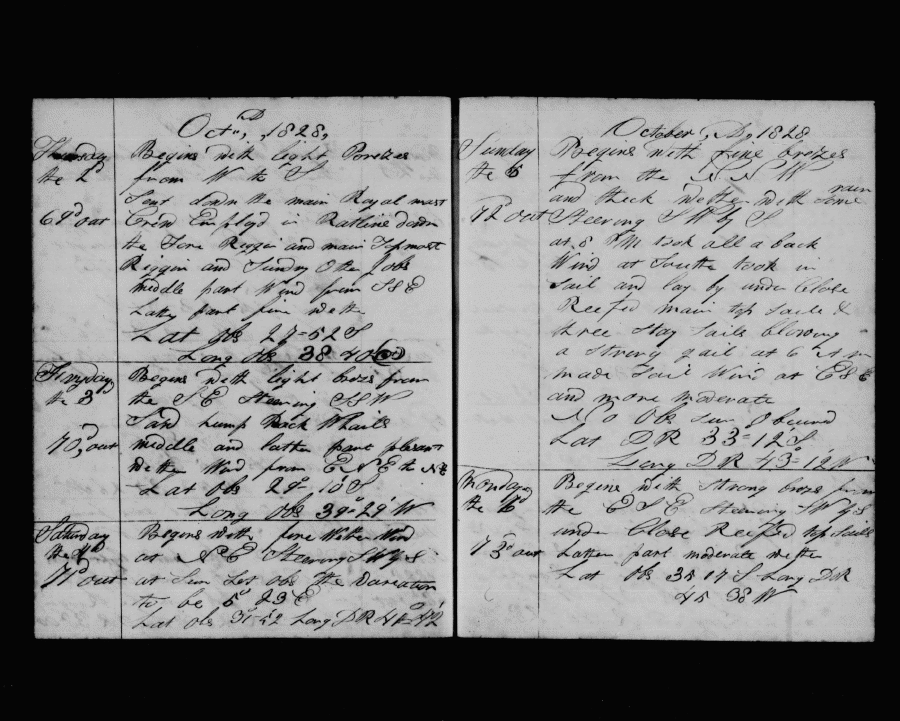 Octr, D, 1828,
Thursday
the 2d
69d out
Begins with light Breizes
from W th S
Sent down the main Royal mast
Crew Employd in Ratline down
the Fore Riggin and main Topmost
Riggin and Sunday Other Jobs
middle part Wind from SSE
Latter part fine wether
Lat obs 27=52 S
Long obs 38 40
Fryday
the 3d
70d, out
Begins with light brozs from
the S E Steering SSW
Saw hump Back Whails
middle and latter part plesant
wether Wind from ENE to NE
Lat obs 29- 10 S
Long obs 39=29 W
Saturday
the 4d
71d out
Begins with fine Wether Wind
at N E Steering SW by S
at Sun Set obs the variation
to be 5 23 E
Lat obs 31=42 Long DR 41=42
October, D, 1828
Sunday
the 5
72 out
Begins with fine breizes
from the N N W
and thick Wether with some rain
Steering S W by S
at 8 PM took all a back
Wind at Southe took in
Sail and lay by under Close
Reefed main top Sail &
three Stay Sails blowing
a Strong gail at 6 A m
made Sail Wind at ESE
and more moderate
No Obs Sun Obscured
Lat DR 33=12 S
Long DR 43=12 W
Monday
the 6
73d out
Begins with Strong brozs from
the E S E Steering SW by S
under Close Reefed top Sails
Latter part moderate wether
Lat obs 35 17 S Long DR
45 38 W